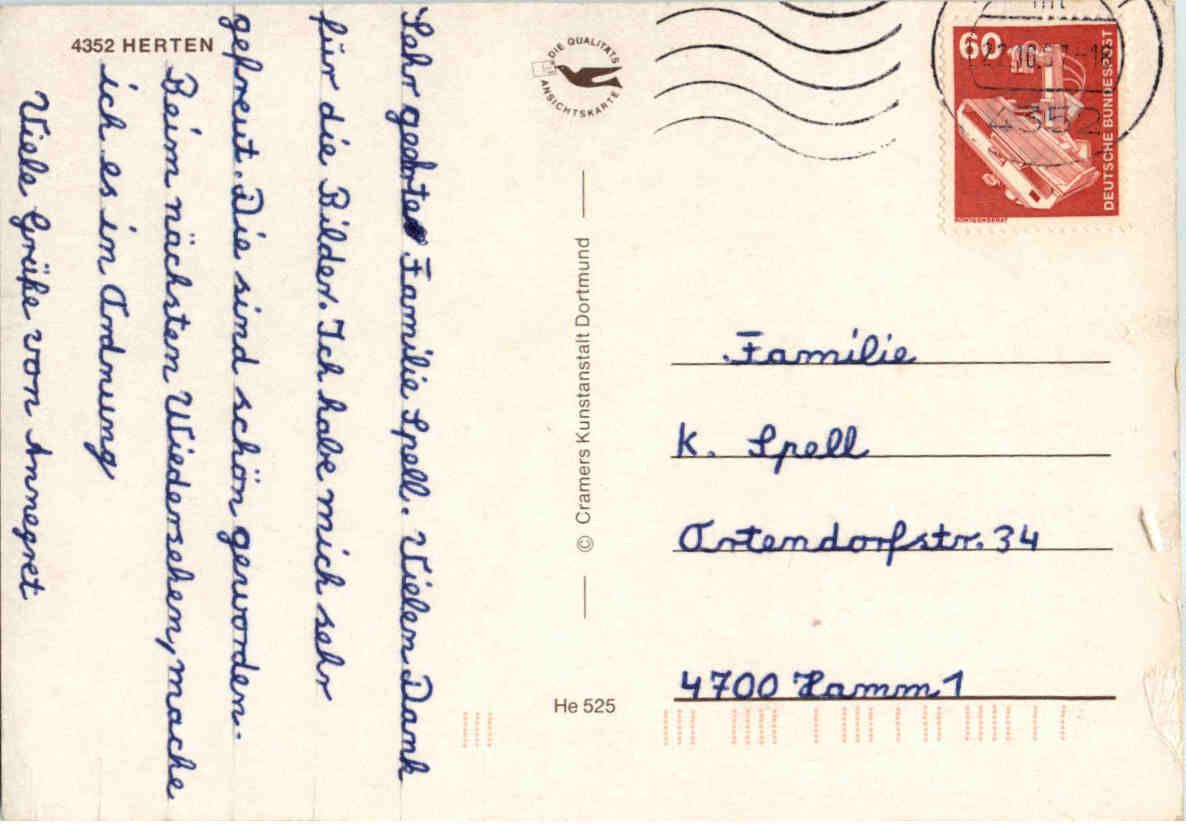 4352 HERTEN
Sehr geehrte Familie Spell. Vielen Dank
für die Bilder. Ich habe mich sehr
gefreut. Die sind schön geworden.
Beim nächsten Wiedersehen, mache
ich es in Ordnung
Viele Grüße von Annegret
DIE QUALITÄTS
ANSICHTSKARTE
© Cramers Kunstanstalt Dortmund
He 525
60
DEUTSCHE BUNDESPOST
4352
Familie
K. Spell
Ortendorfstr. 34
4700 Hamm 1